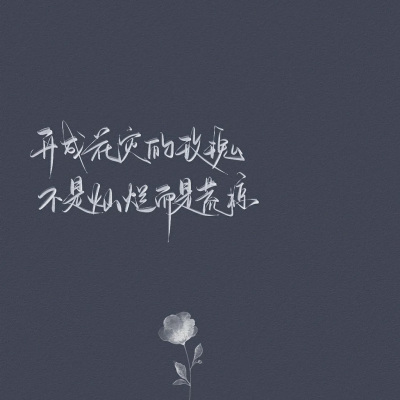 开成花灾的玫瑰
不是灿烂而是荒凉